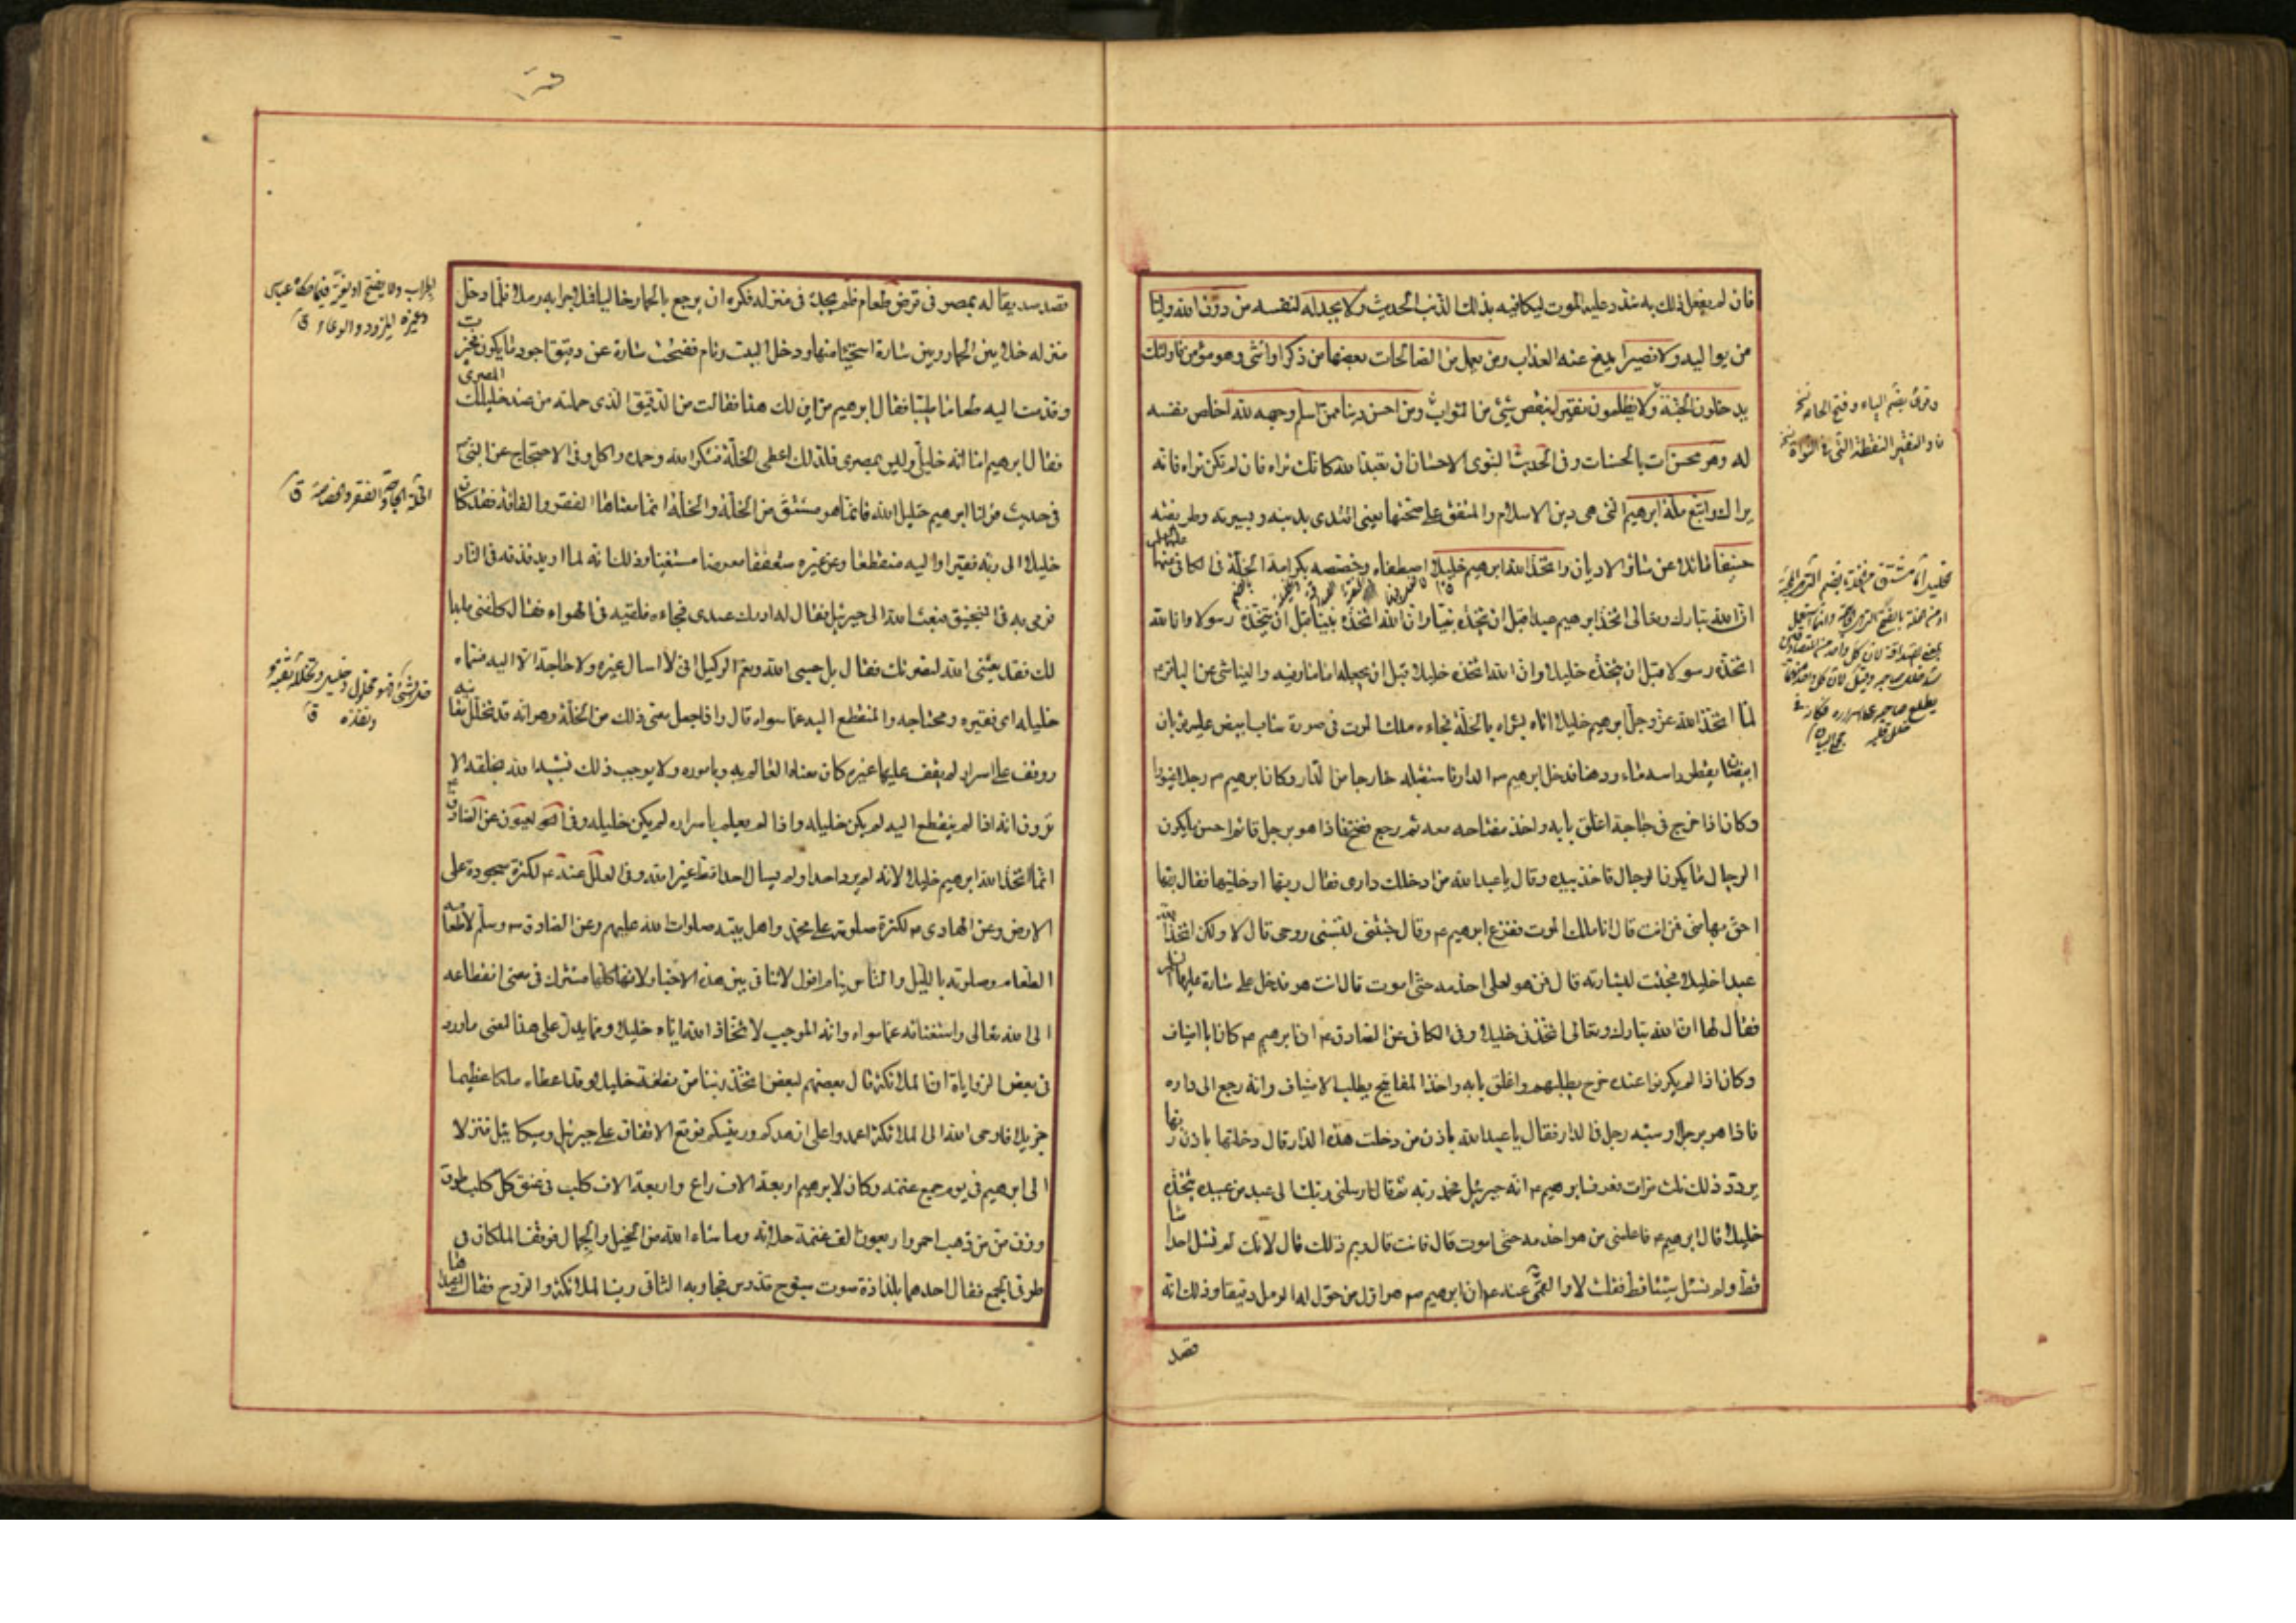 فان لم يفعل ذلك به شدد عليه الموت ليكافيه بذلك الذنب الحديث ولا يجد له لنفسه من دون الله وليا
من يواليه ولا نصيرا يدفع عنه العذاب ومن يعمل من الصالحات بعضها من ذكر او انثى وهو مؤمن فاولئك
يدخلون الجنة ولا يظلمون نقيرا بنقص شئ من الثواب ومن احسن دينا ممن اسلم وجهه لله اخلص نفسه
له وهو محسن ات بالحسنات وفى الحديث النبوى الاحسان ان تعبد الله كانك تراه فان لم تكن تراه فانه
يراك واتبع ملة ابرهيم التى هى دين الاسلام والمتفق على صحتها يعنى اقتدى بدينه وبسيرته وطريقته
حنيفا مائلا عن سائر الاديان واتخذ الله ابرهيم خليلا اصطفاه وخصصه بكرامة الخلة فى الكافى
ان الله تبارك وتعالى اتخذ ابرهيم عبدا قبل ان يتخذه نبيا وان الله اتخذه نبيا قبل ان يتخذه رسولا وان الله
اتخذه رسولا قبل ان يتخذه خليلا وان الله اتخذه خليلا قبل ان يجعله اماما وفيه والعياشى عن الباقر ع
لما اتخذ الله عز وجل ابرهيم خليلا اتاه بشراه بالخلة فجاءه ملك الموت فى صورة شاب ابيض عليه ثوبان
ابيضان يقطر راسه ماء ودهنا فدخل ابرهيم ع الدار فاستقبله خارجا من الدار وكان ابرهيم ع رجلا غيورا
وكان اذا خرج فى حاجة اغلق بابه واخذ مفتاحه معه ثم رجع ففتح فاذا هو برجل قائم احسن ما يكون
الرجال ما يكون الرجال فاخذ بيده وقال يا عبد الله من ادخلك دارى فقال ربها ادخلنيها فقال ربها
احق بها منى فمن انت قال انا ملك الموت ففزع ابرهيم ع وقال جئتنى لتسلبنى روحى قال لا ولكن اتخذ الله
عبدا خليلا فجئت لبشارته قال فمن هو لعلى اخدمه حتى اموت قال انت هو فدخل على سارة عليها السلام
فقال لها ان الله تبارك وتعالى اتخذنى خليلا وفى الكافى عن الصادق ع ان ابرهيم ع كان ابا اضياف
وكان اذا لم يكونوا عنده خرج يطلبهم واغلق بابه واخذ المفاتيح يطلب الاضياف وانه رجع الى داره
فاذا هو برجل او شبه رجل فى الدار فقال يا عبد الله باذن من دخلت هذه الدار قال دخلتها باذن ربها
يردد ذلك ثلث مرات فعرف ابرهيم ع انه جبرئيل فحمد ربه ثم قال ارسلنى ربك الى عبد من عبيده يتخذه
خليلا قال ابرهيم ع فاعلمنى من هو اخدمه حتى اموت قال فانت قال وبم ذلك قال لانك لم تسئل احدا شيئا
قط ولم تسئل شيئا قط فقلت لا والقمى عنه ع ان ابرهيم ع هو اول من حول له الرمل دقيقا وذلك انه
قصد
وقرئ بضم الياء وفتح الخاء
قصد صديقا له بمصر فى قرض طعام فلم يجده فى منزله فكره ان يرجع بالحمار خاليا فملا جرابه رملا فلما دخل
منزله خلا بين الحمار وبين سارة استحياء منها ودخل البيت ونام ففتحت سارة عن دقيق اجود ما يكون فخبزت
وقدمت اليه طعاما طيبا فقال ابرهيم من اين لك هذا فقالت من الدقيق الذى حملته من عند خليلك المصرى
فقال ابرهيم اما انه خليلى وليس بمصرى فلذلك اعطى الخلة فشكر الله وحمده واكل وفى الاحتجاج عن النبى ص
فى حديث قولنا ابرهيم خليل الله فانما هو مشتق من الخلة والخلة انما معناها الفقر والفاقة فقد كان
خليلا الى ربه فقيرا واليه منقطعا وعن غيره متعففا معرضا مستغنيا وذلك انه لما اريد قذفه فى النار
فرمى به فى المنجنيق فبعث الله الى جبرئيل فقال له ادرك عبدى فجاءه فلقيه فى الهواء فقال كلفنى ما بدا
لك فقد بعثنى الله لنصرتك فقال بل حسبى الله ونعم الوكيل انى لا اسال غيره ولا حاجة الا اليه فسماه
خليله اى فقيره ومحتاجه والمنقطع اليه عما سواه قال واذا جعل معنى ذلك من الخلة وهو انه قد تخلل معانيه
ووقف على اسرار لم يقف عليها غيره كان معناه العالم به وباموره ولا يوجب ذلك تشبيه الله بخلقه الا
ترون انه اذا لم ينقطع اليه لم يكن خليله واذا لم يعلم باسراره لم يكن خليله وفى العيون عن الصادق ع
انما اتخذ الله ابرهيم خليلا لانه لم يرد احدا ولم يسال احدا قط غير الله وفى العلل عنه ع لكثرة سجوده على
الارض وعن الهادى ع لكثرة صلوته على محمد واهل بيته صلوات الله عليهم وعن الصادق ع وسلم لاطعامه
الطعام وصلوته بالليل والناس نيام اقول لا تنافى بين هذه الاخبار لانها كلها مشترك فى معنى انقطاعه
الى الله تعالى واستغنائه عما سواه وانه الموجب لاتخاذ الله اياه خليلا ومما يدل على هذا المعنى ما ورد
فى بعض الروايات ان الملائكة قال بعضهم لبعض اتخذ ربنا من نطفة خليلا وقد اعطاه ملكا عظيما
جزيلا فاوحى الله الى الملائكة اعمدوا على ازهدكم ورئيسكم فوقع الاتفاق على جبرئيل وميكائيل فنزلا
الى ابرهيم فى يوم جمع غنمه وكان لابرهيم اربعة الاف راع واربعة الاف كلب فى عنق كل كلب طوق
وزن من من ذهب احمر واربعون الف غنمة حلابة وما شاء الله من الخيل والجمال فوقف الملكان فى
طرفى الجمع فقال احدهما بلذاذة صوت سبوح قدوس فجاوبه الثانى رب الملائكة والروح فقال